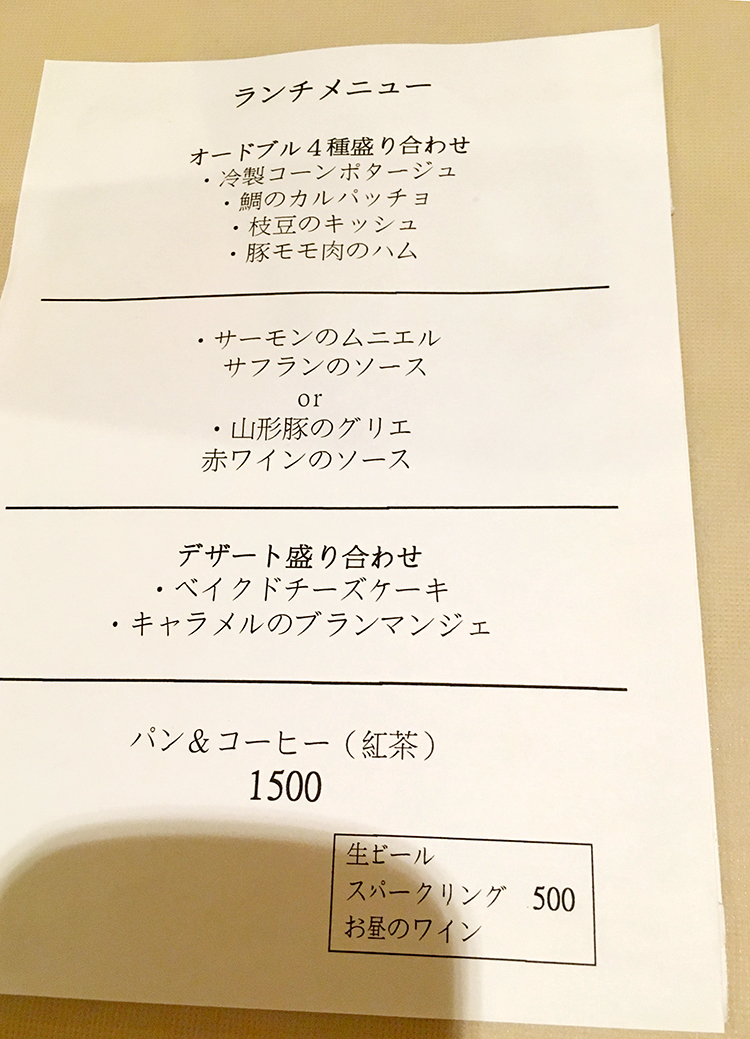 ランチメニュー
オードブル４種盛り合わせ
・冷製コーンポタージュ
・鯛のカルパッチョ
・枝豆のキッシュ
・豚モモ肉のハム
・サーモンのムニエル
サフランのソース
or
・山形豚のグリエ
赤ワインのソース
デザート盛り合わせ
・ベイクドチーズケーキ
・キャラメルのブランマンジェ
パン＆コーヒー（紅茶）
1500
生ビール
スパークリング 500
お昼のワイン